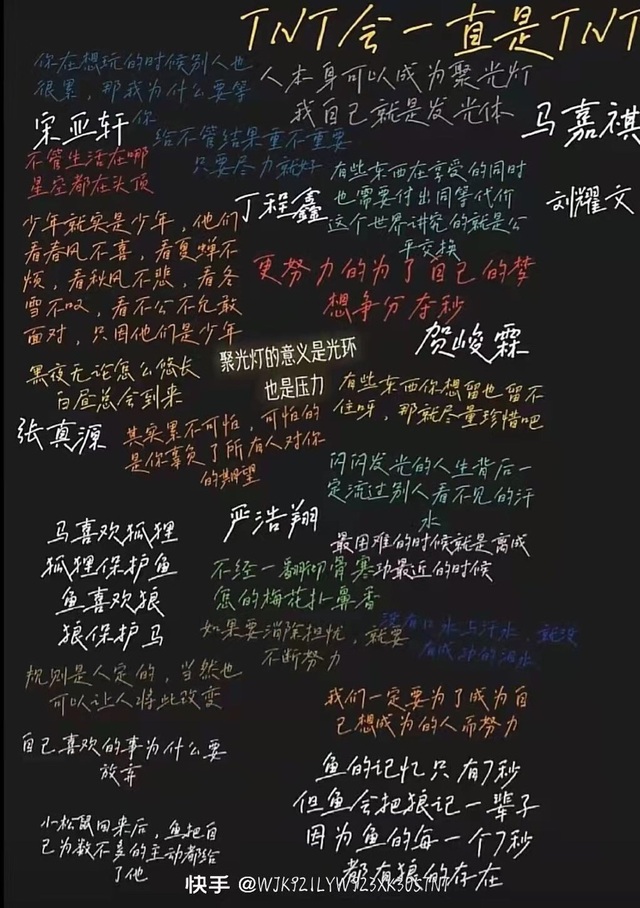 TNT会一直是TNT
你在想玩的时候别人也
很累，那我为什么要等
你
人本身可以成为聚光灯
我自己就是发光体
马嘉祺
宋亚轩
给不管结果重不重要
只要尽力就好
不管生活在哪
星座都在头顶
有些东西在享受的同时
也需要付出同等代价
这个世界讲究的就是公
平交换
丁程鑫
刘耀文
少年就实是少年，他们
看春风不喜，看夏蝉不
烦，看秋风不悲，看冬
雪不叹，看不公不允敢
面对，只因他们是少年
更努力的为了自己的梦
想争分夺秒
贺峻霖
聚光灯的意义是光环
也是压力
黑夜无论怎么悠长
白昼总会到来
有些东西你想留也留不
住呀，那就尽量珍惜吧
张真源
其实累不可怕，可怕的
是你辜负了所有人对你
的期望
闪闪发光的人生背后一
定流过别人看不见的汗
水
严浩翔
最困难的时候就是离成
功最近的时候
马喜欢狐狸
狐狸保护鱼
鱼喜欢狼
狼保护马
不经一翻彻骨寒
怎的梅花扑鼻香
如果要消除担忧，就要
不断努力
没有口水与汗水，就没
有成功的泪水
规则是人定的，当然也
可以让人将此改变
我们一定要为了成为自
己想成为的人而努力
自己喜欢的事为什么要
放弃
鱼的记忆只有7秒
但鱼会把狼记一辈子
因为鱼的每一个7秒
都有狼的存在
小松鼠回来后，鱼把自
己为数不多的主动都给
了他
快手